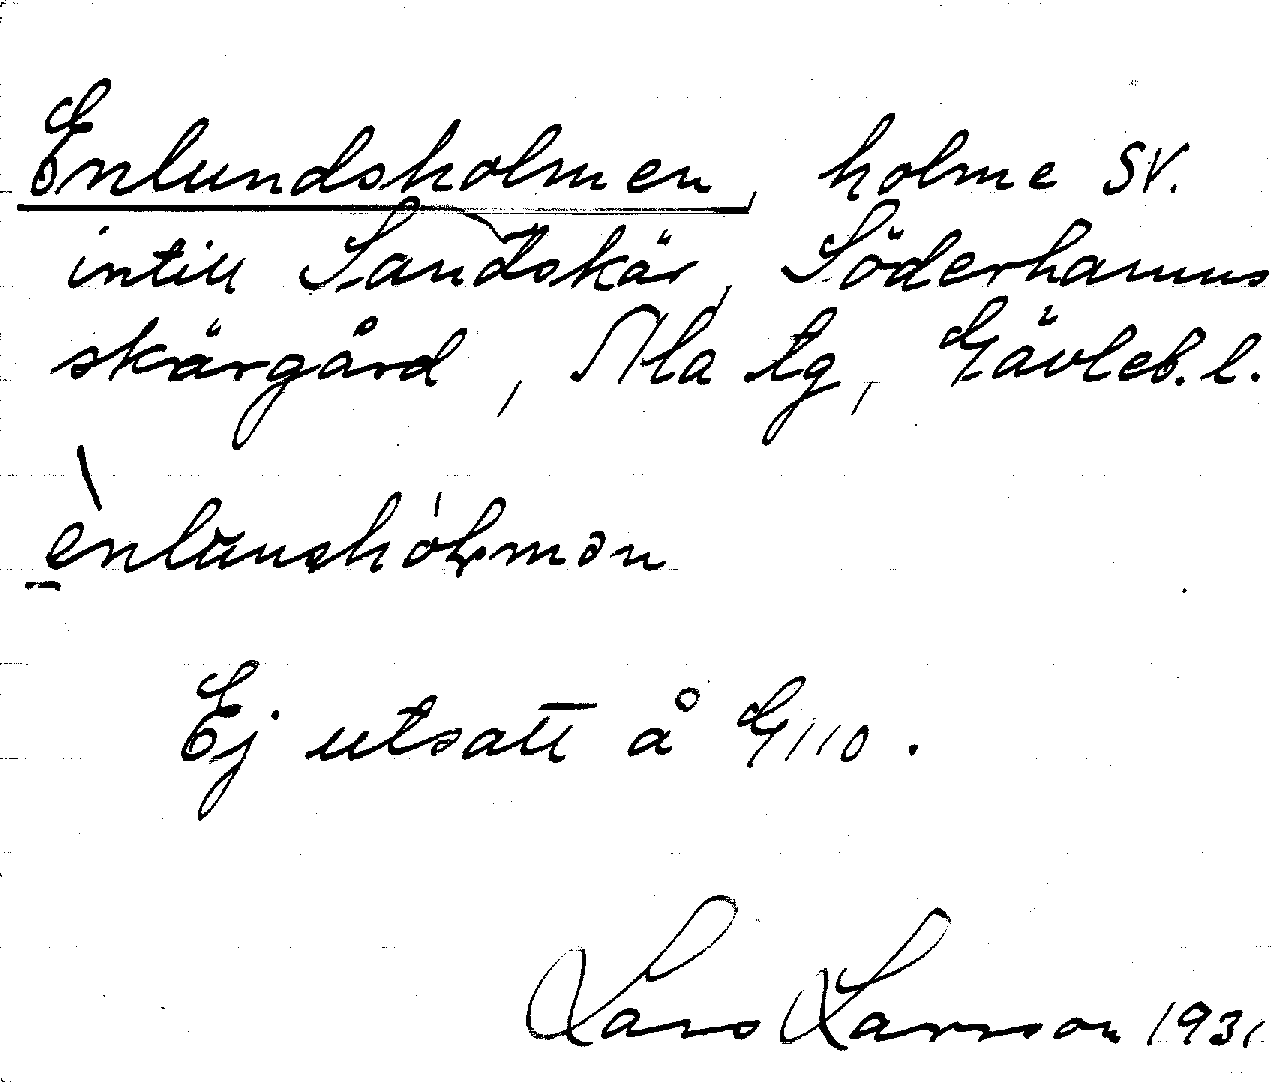 Enlundsholmen, holme SV.
intill Sandskär, Söderhamns
skärgård, Ala tg, Gävleb. l.
Ej utsatt å G110.
Lars Larsson 1931